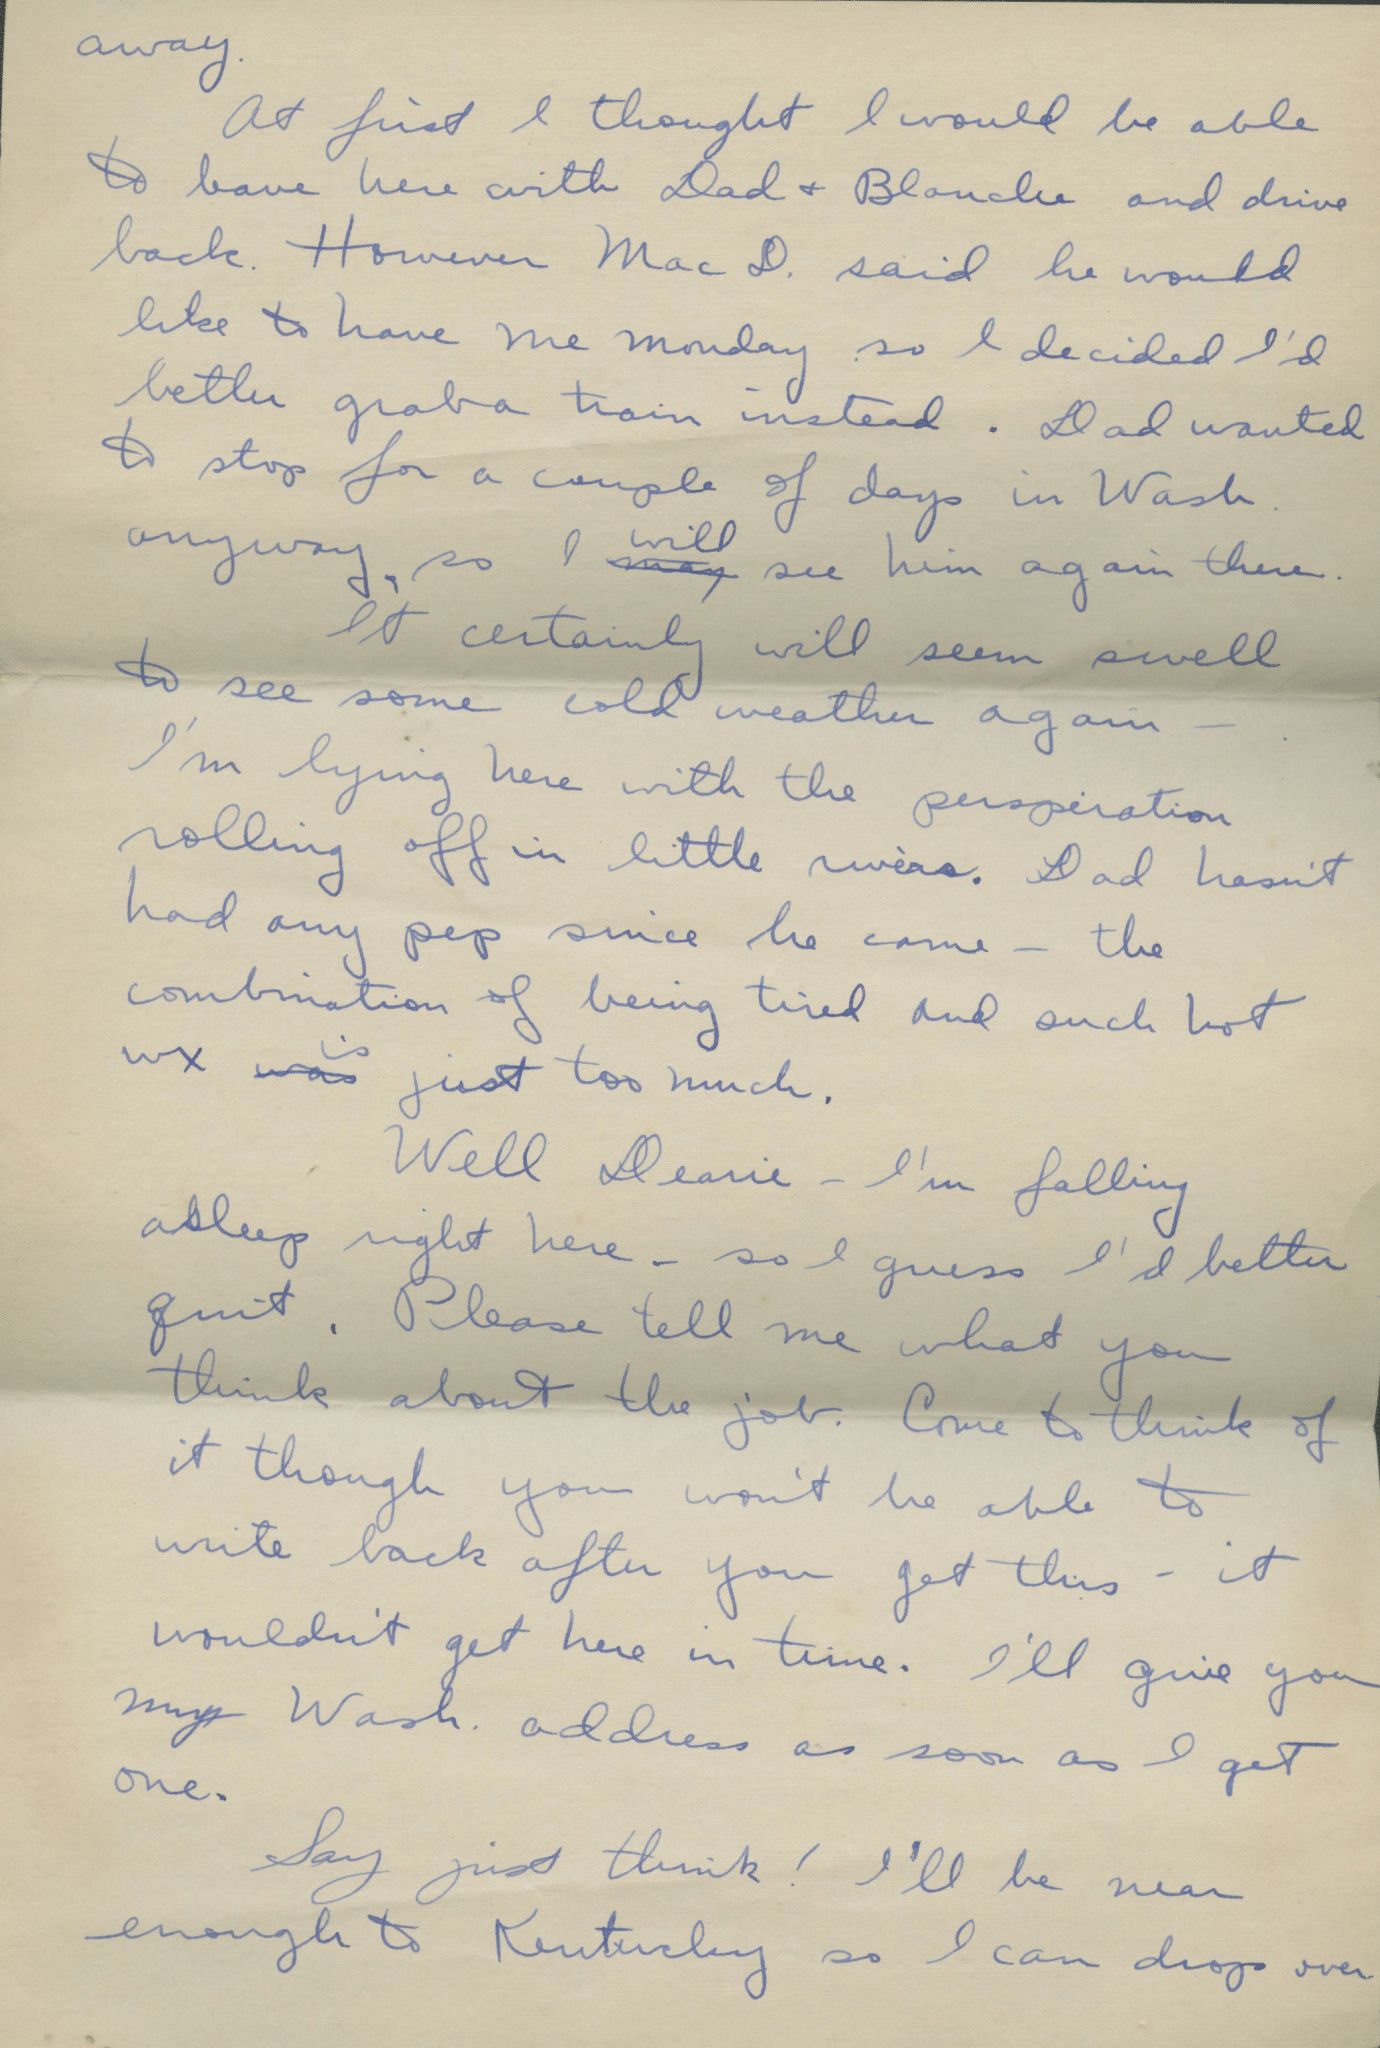 away.
At first I thought I would be able
to leave here with Dad + Blanche and drive
back. However Mac D. said he would
like to have me Monday so I decided I'd
better grab a train instead. Dad wanted
to stop for a couple of days in Wash.
anyway, so I ~~may~~ will see him again there.
It certainly will seem swell
to see some cold weather again –
I'm lying here with the perspiration
rolling off in little rivers. Dad hasn't
had any pep since he came – the
combination of being tired and such hot
wx ~~was~~ is just too much.
Well Dearie – I'm falling
asleep right here – so I guess I'd better
quit. Please tell me what you
think about the job. Come to think of
it though you won't be able to
write back after you get this – it
wouldn't get here in time. I'll give you
my Wash. address as soon as I get
one.
Say just think! I'll be near
enough to Kentucky so I can drop over